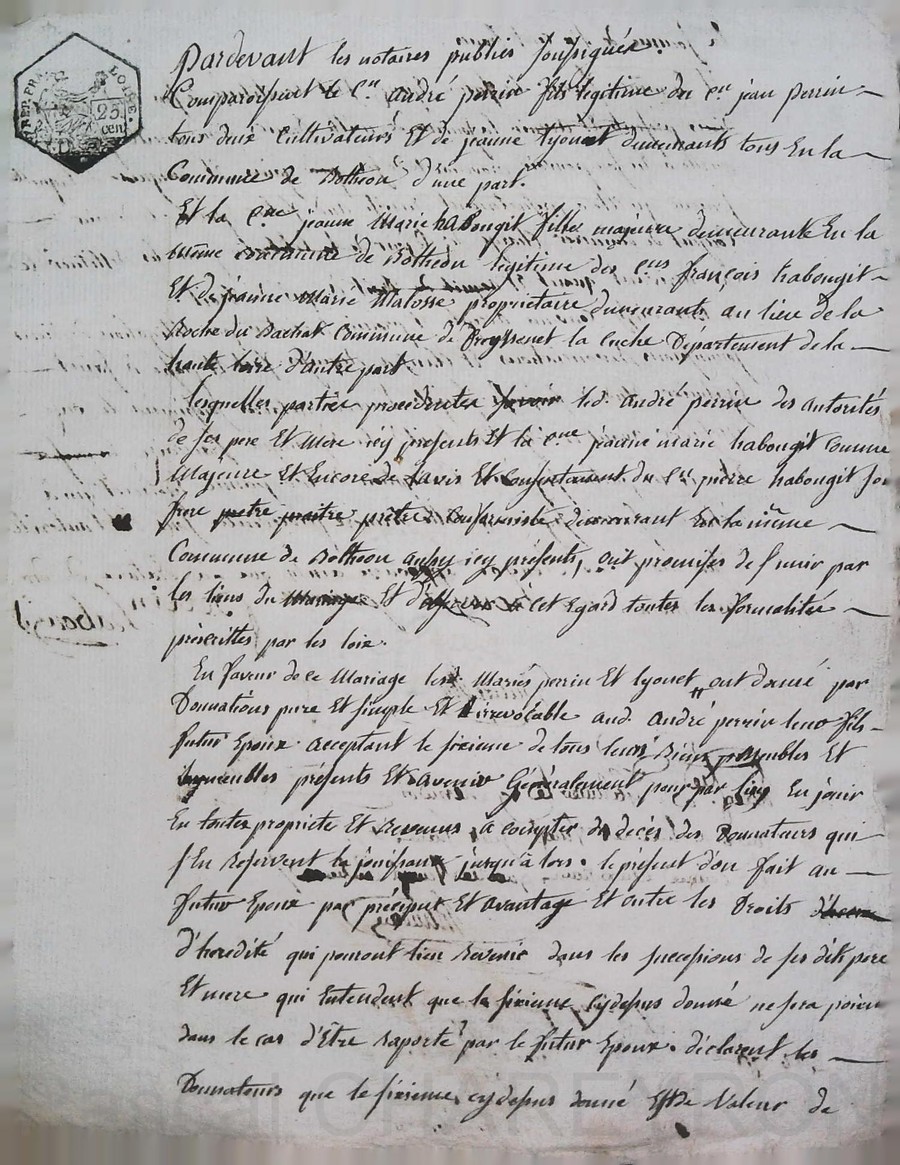 REP. FRA. LOIRE.
25
cen
Pardevant les notaires publics soussignés
Comparoissent le Cen andré perrin fils legitime du cen jean perrin
tous deux Cultivateurs Et de jeanne lyonet demeurants tous En la
Commune de Botheon d'une part.
Et la Cne jeanne Marie habougit fille majeure demeurante En la
même commune de Botheon legitime des cens françois habougit
Et de jeanne Marie Malosse proprietaire demeurants au lieu de la
Roche du Bachat Commune de la Département de la
haute loire d'autre part
lesquelles parties procedantes led. andré perrin des autorités
de ses pere Et Mere icy presents Et la cne jeanne marie habougit comme
Majeure Et Encore de l'avis Et Consentement du Cn pierre habougit
frere pretre demeurant En la même
Commune de Botheon aussy icy présents, ont promises de s'unir par
les liens du Mariage Et d'observer à cet Egard toutes les formalités
préscrittes par les loix.
En faveur de ce Mariage les Mariés perrin Et lyonet ont donné par
Donnations pure Et simple Et irrevocable aud. andré perrin leur fils
futur Epoux acceptant le sixieme de tous leurs Biens meubles Et
immeubles présents Et avenir Généralement pour par luy En jouir
En toutes propriete Et Revenus, à compter du decès des Donnateurs qui
s'En reservent la jouissance jusqu'à lors. le présent don fait au
futur Epoux par préciput Et avantage Et outre les Droits
d'heredité qui pouront lui revenir dans les successions de ses dits pere
Et mere qui Entendent que le sixieme cydessus donné ne sera point
dans le cas d'Etre raporté par le futur Epoux. déclarent les
Donnateurs que le sixieme cydessus donné Est de Valeur de